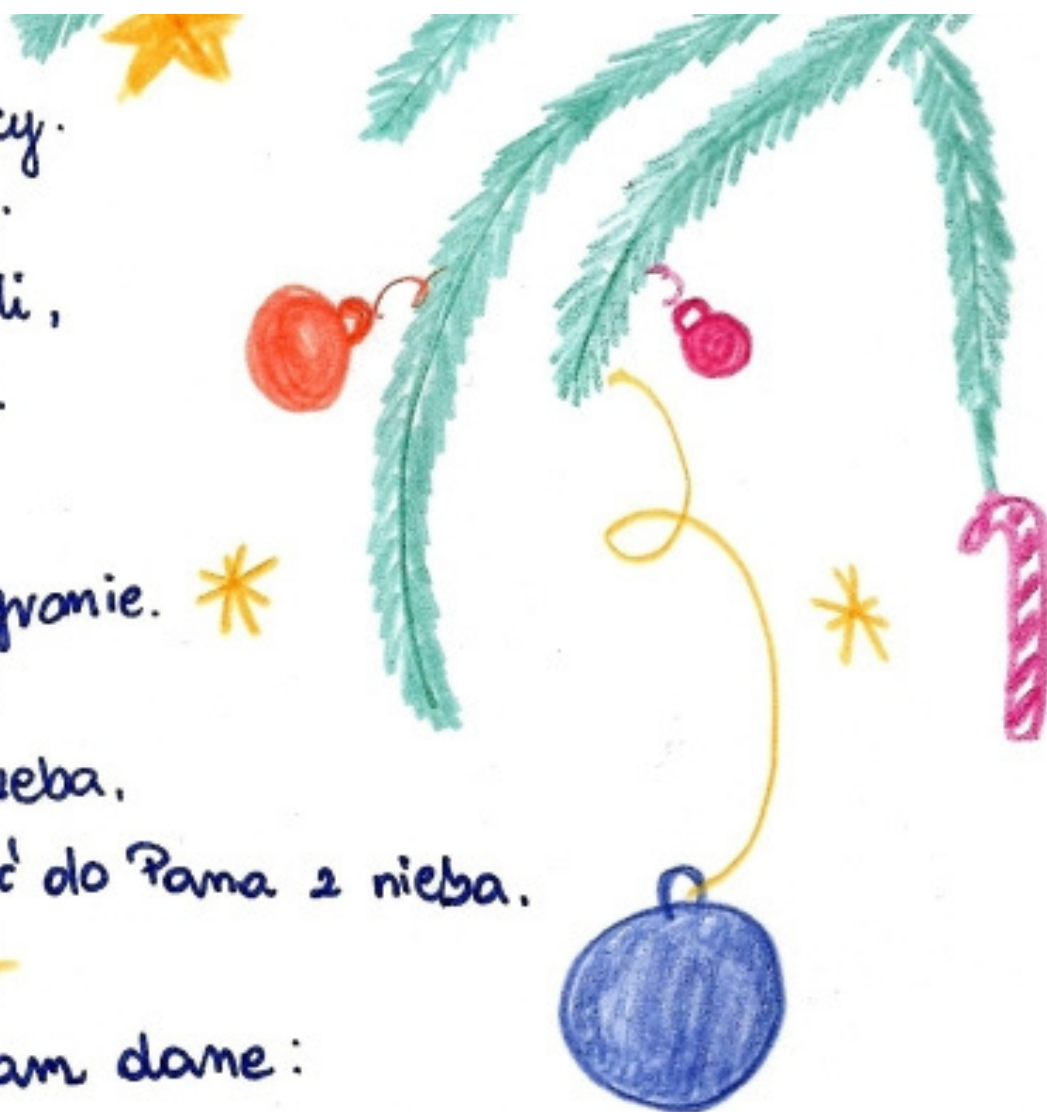 cy.
li,
gronie.
ieba.
ć do Pana z nieba.
am dane: